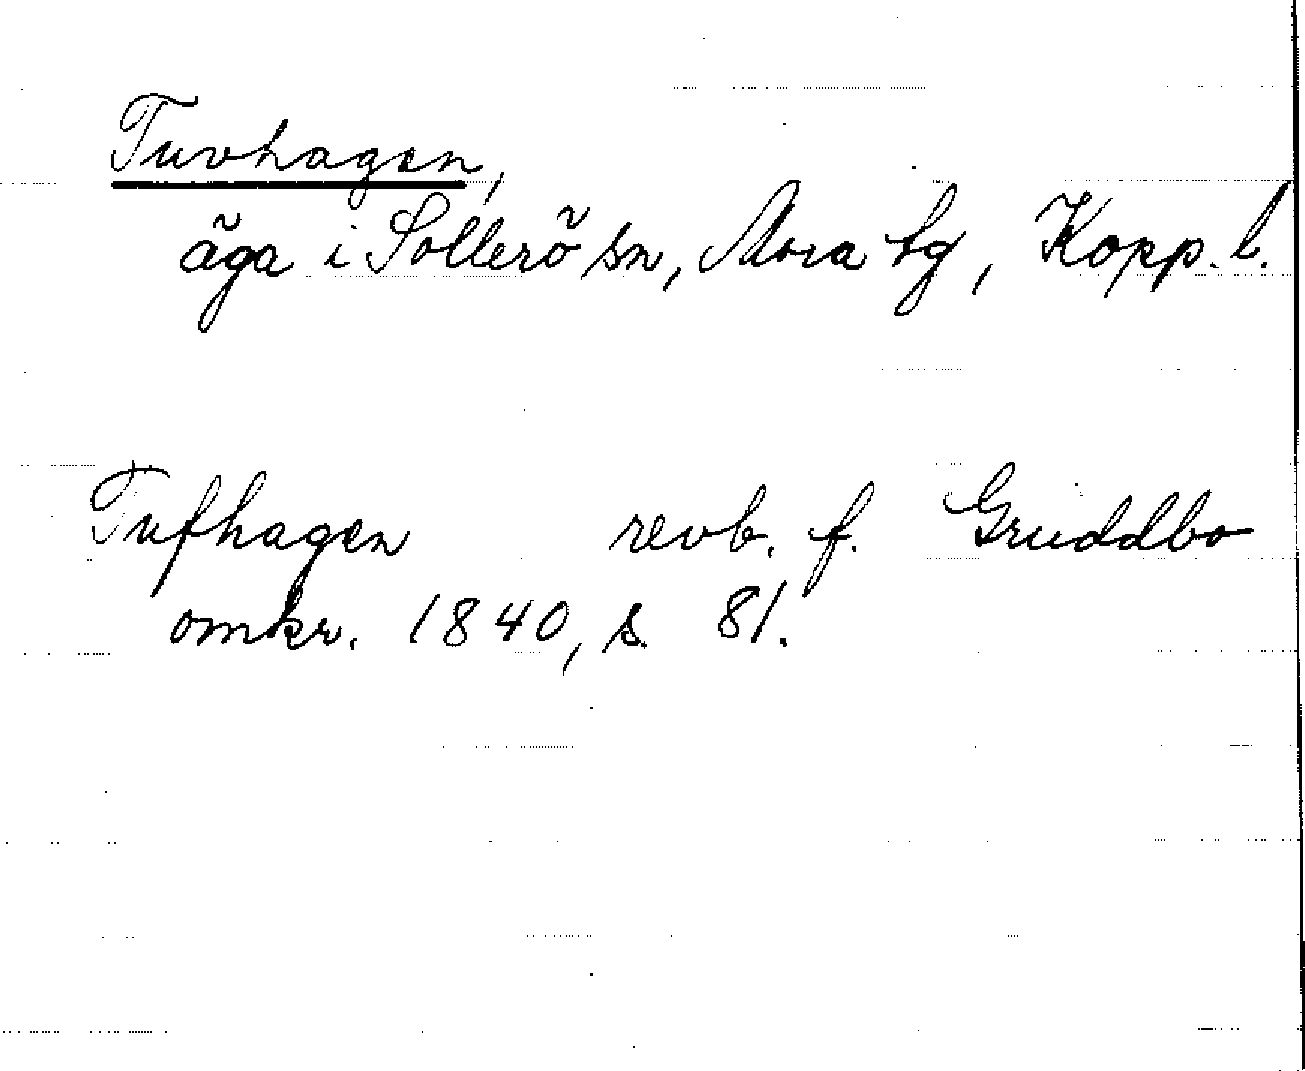 Tuvhagen,
äga i Sollerö sn, Mora tg, Kopp. l.
Tufhagen revb. f. Gruddbo
omkr. 1840, s. 81.